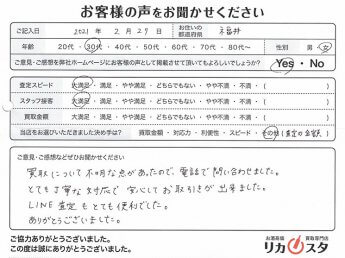 お客様の声をお聞かせください
ご記入日 2021年 2月 27日 お住いの都道府県 福井
年齢 20代・30代・40代・50代・60代・70代・80代〜 性別 男・女
ご意見・ご感想を弊社ホームページにお客様の声として掲載させて頂いてもよろしいでしょうか? Yes・No
査定スピード 大満足・満足・やや満足・どちらでもない・やや不満・不満・( )
スタッフ接客 大満足・満足・やや満足・どちらでもない・やや不満・不満・( )
買取金額 大満足・満足・やや満足・どちらでもない・やや不満・不満・( )
当店をお選びいただきました決め手は? 買取金額・対応力・利便性・スピード・その他(査定の金額)
ご意見・ご感想などぜひお聞かせください
買取について不明な点があったので、電話で問い合わせました。
とても丁寧な対応で安心してお取引が出来ました。
LINE査定もとても便利でした。
ありがとうございました。
ご協力ありがとうございました。
この度は誠にありがとうございました。
お酒高価買取専門店
リカスタ